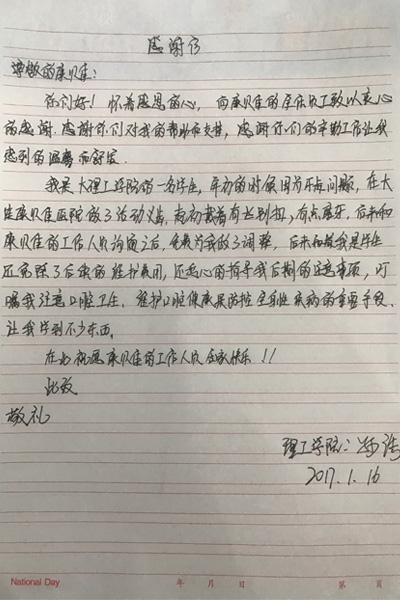 感谢信
尊敬的康贝佳:
你们好!怀着感恩的心,向康贝佳的全体员工致以衷心
的感谢.感谢你们对我的帮助和支持,感谢你们的辛勤工作让我
感到的温馨和舒适.
我是大理工学院的一名学生,年初的时候因为牙齿问题,在大
连康贝佳医院做了活动义齿,起初戴着有长别扭,有点磨牙,后来和
康贝佳的工作人员沟通之后,免费为我做了调整,后来知道我是学生
还免除了后续的维护费用,还耐心的指导我后期的注意事项,叮
嘱我注意口腔卫生.维护口腔健康是防控全身性疾病的重要手段,
让我学到不少东西。
在此祝愿康贝佳的工作人员合家快乐!!
此致
敬礼
理工学院:
2017.1.16
National Day 年 月 日 第 页